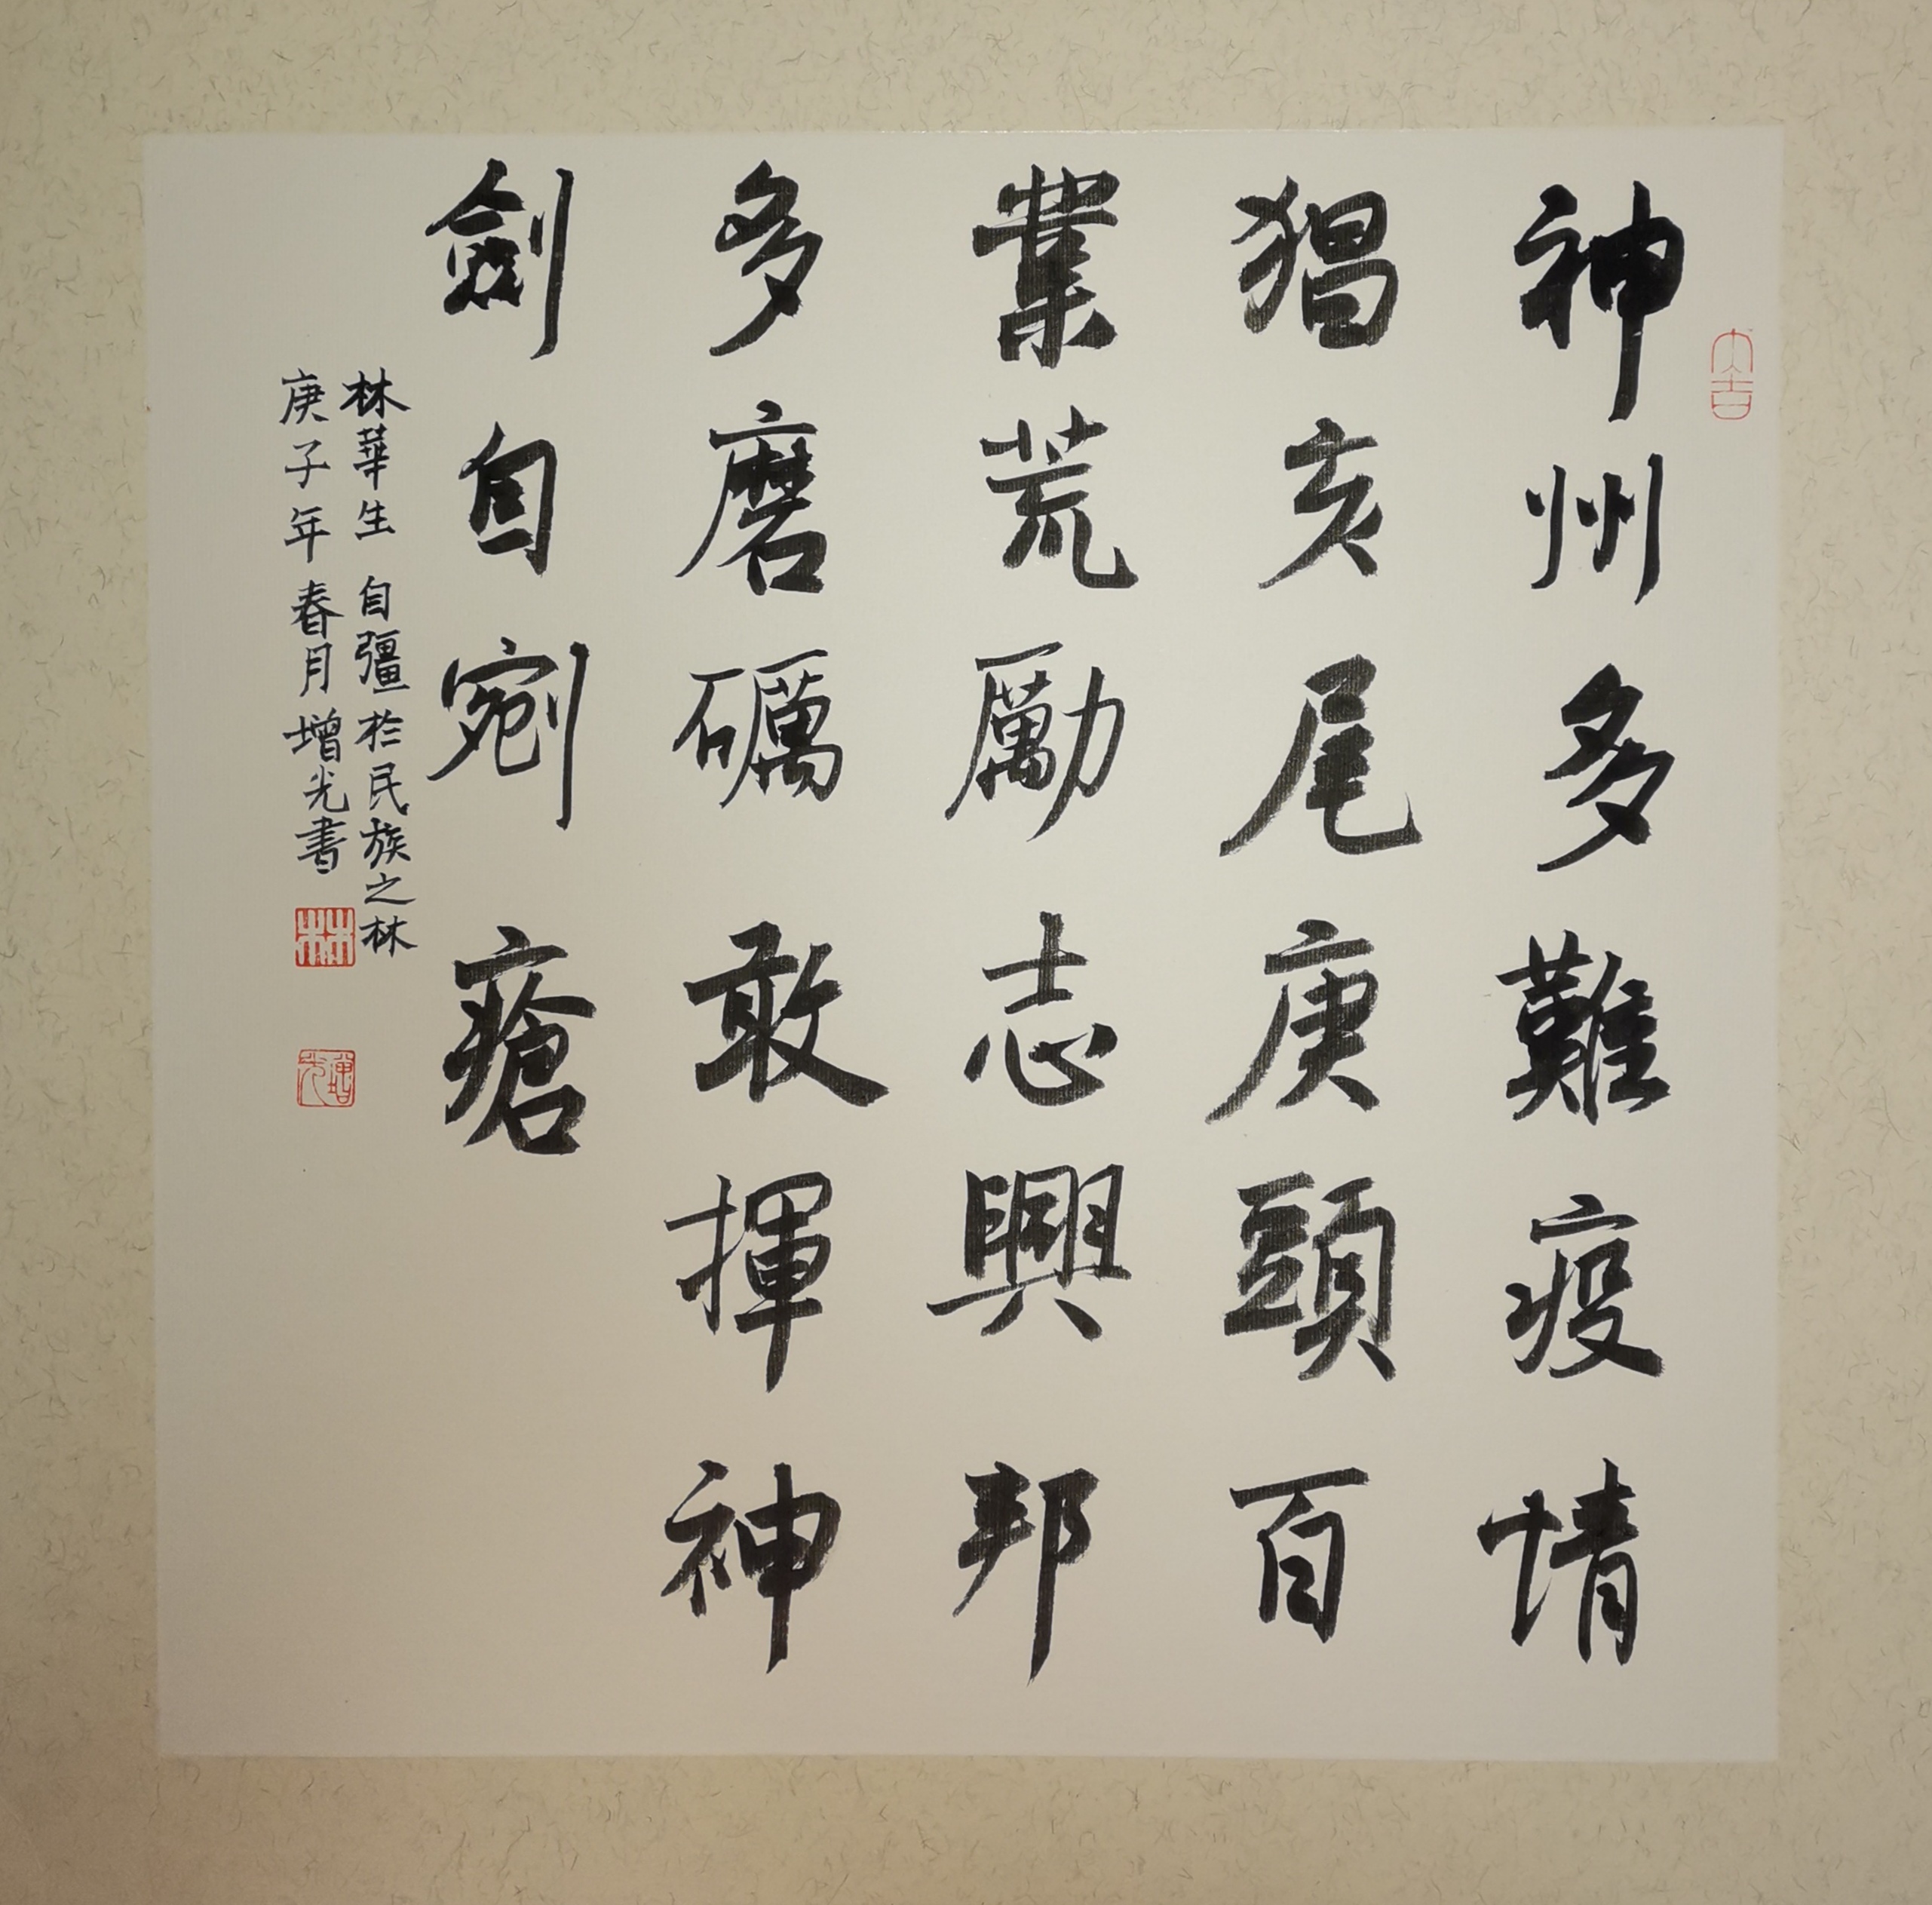 大吉
神州多難疫情
猖亥尾庚頭百
業荒勵志興邦
多磨礪敢揮神
劍自剜瘡
林華生 自彊於民族之林
庚子年春月增光書
林
增光